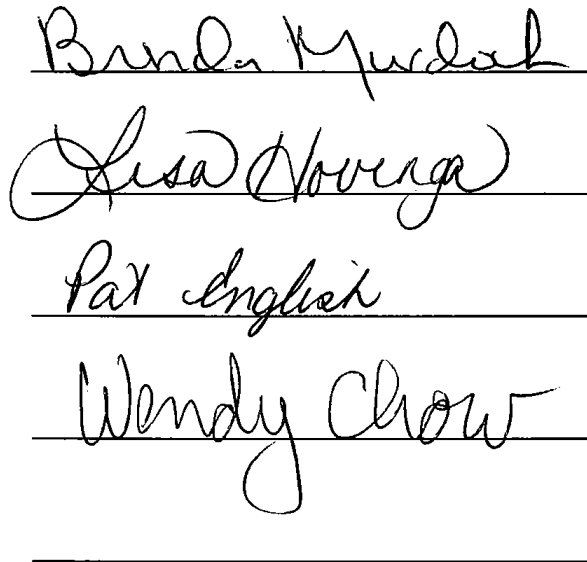 Brenda Murdoch
Lisa Hovenga
Pat English
Wendy Chow